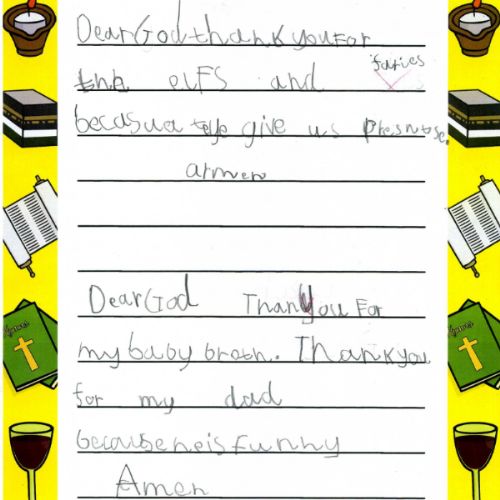 Dear God thank you for
the elfs and faries
becasua teye give us presntse.
armen
Dear God Thank you For
my baby broth. Thank you
for my dad
because he is funny
Amen
Hymns
Hymns